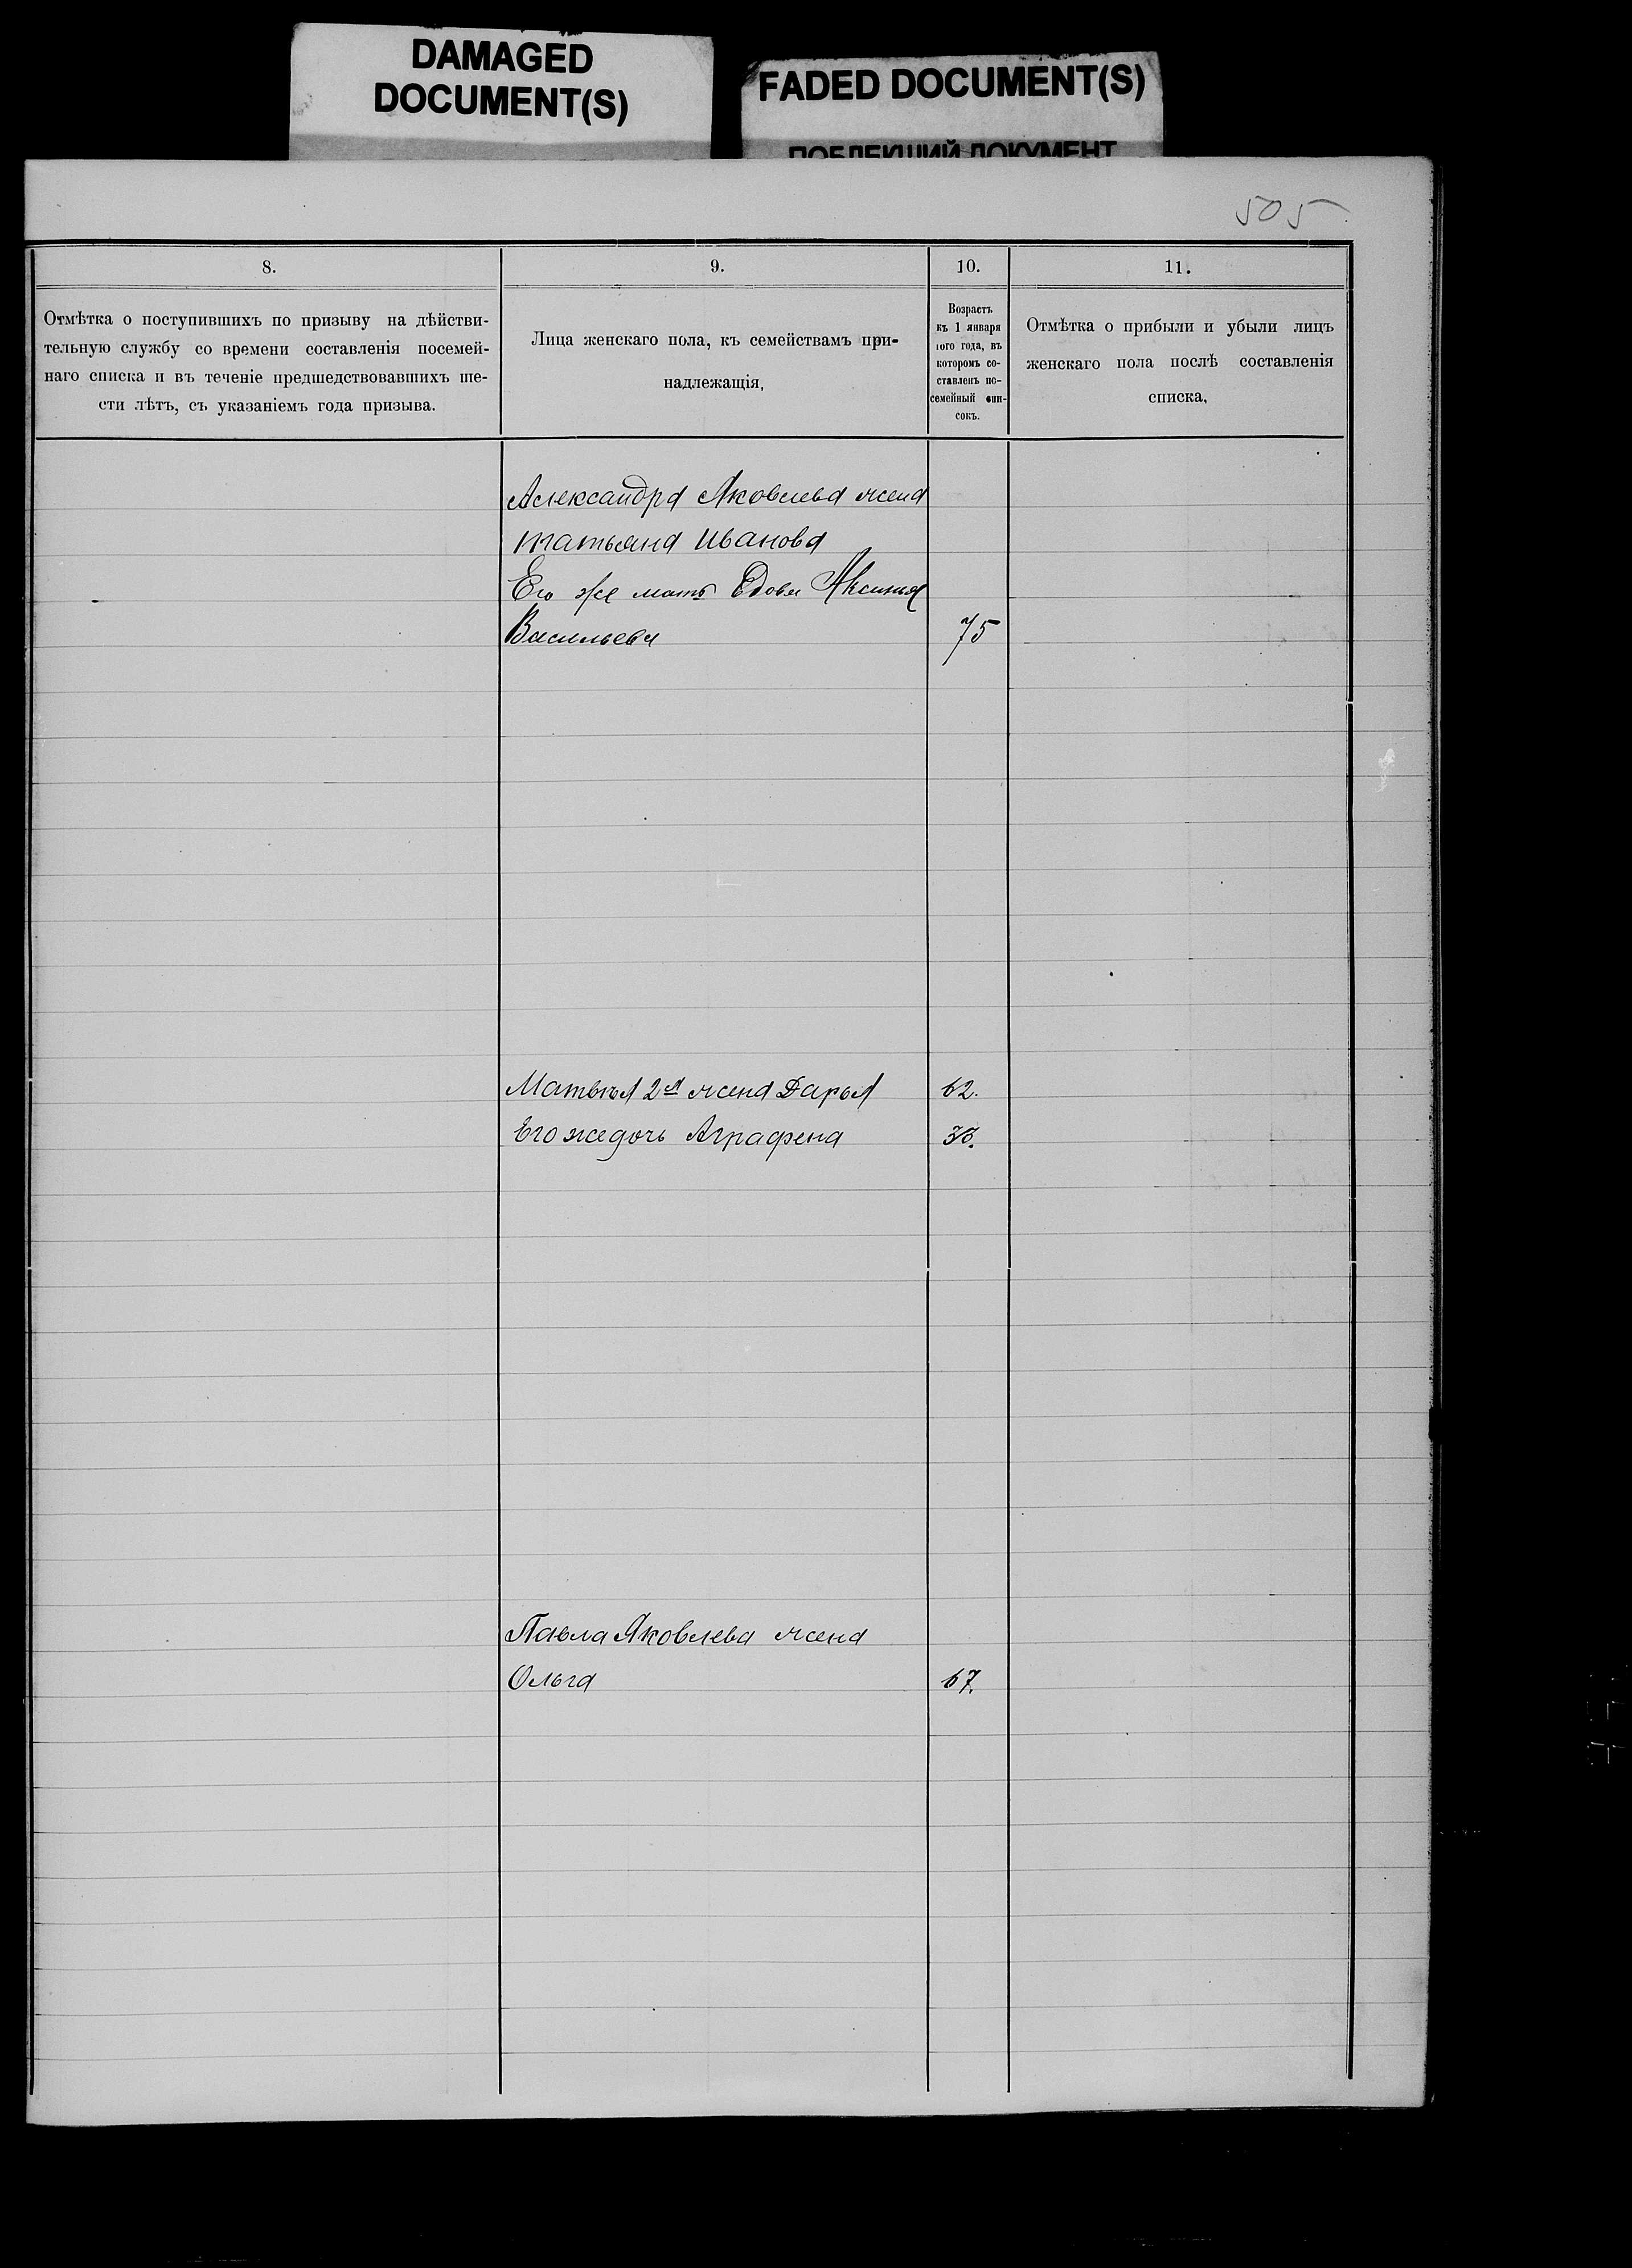 DAMAGED
DOCUMENT(S)
FADED DOCUMENT(S)
ПОБЛЕКШИЙ ДОКУМЕНТ
505
8.
9.
10.
11.
Отмѣтка о поступившихъ по призыву на дѣйстви-
тельную службу со времени составленія посемей-
наго списка и въ теченіе предшедствовавшихъ ше-
сти лѣтъ, съ указаніемъ года призыва.
Лица женскаго пола, къ семействамъ при-
надлежащія,
Возрастъ
къ 1 января
того года, въ
которомъ со-
ставленъ по-
семейный спи-
сокъ.
Отмѣтка о прибыли и убыли лицъ
женскаго пола послѣ составленія
списка,
Александра Яковлева жена
татьяна Иванова
Его же мать Вдова Аксинья
Васильева 75
Матвѣя 2я жена Дарья 62.
Его же дочь Аграфена
Павла Яковлева жена
Ольга 67.